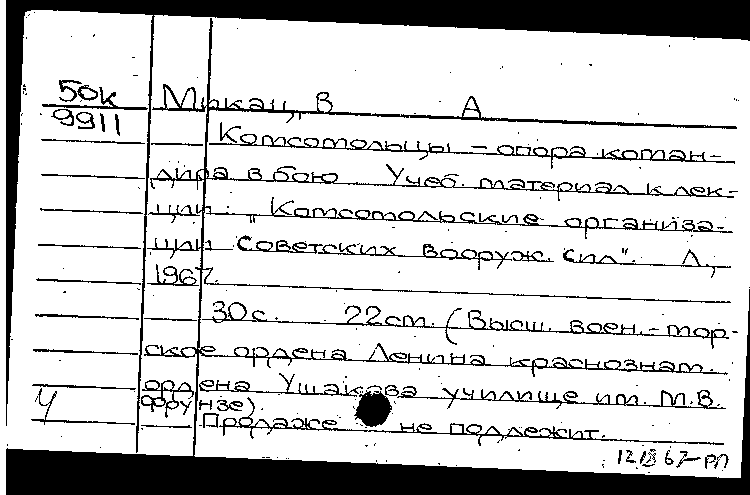 50к Микац, В А
9911
Комсомольцы – опора коман-
дира в бою Учеб. материал к лек-
ции: „Комсомольские организа-
ции Советских Вооруж. сил". Л.,
1967.
30с. 22cm. (Высш. воен.-мор-
ское ордена Ленина краснознам.
ордена Ушакова училище им. М.В.
Фрунзе)
Ч
Продаже не подлежит.